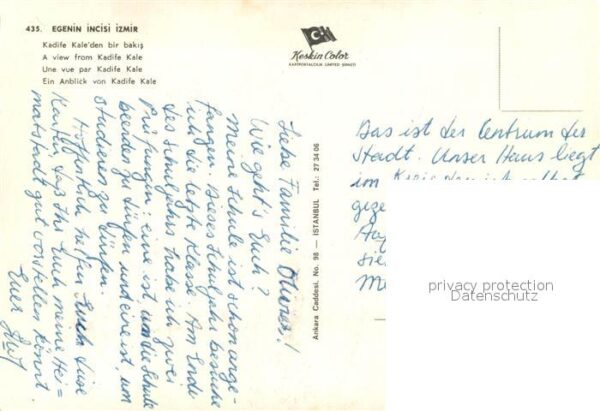 435. EGENİN İNCİSİ İZMİR
Kadife Kale'den bir bakış
A view from Kadife Kale
Une vue par Kadife Kale
Ein Anblick von Kadife Kale
Keskin Color
KARTPOSTALCILIK LİMİTED ŞİRKETİ
Ankara Caddesi, No. 98 — İSTANBUL Tel.: 27 34 06
Liebe Familie
Wie geht's Euch?
Meine Schule ist schon ange-
fangen. Dieses Schuljahr besuche
ich die letzte Klasse. Am Ende
des Schuljahrs hab ich zwei
Prüfungen: eine ist um die Schule
beenden zu dürfen und eine ist, um
studieren zu dürfen.
Hoffentlich helfen Euch diese
Karten, daß Ihr Euch meine Hei-
matstadt gut vorstellen könnt.
Euer
Das ist der Centrum der
Stadt. Unser Haus liegt
im
privacy protection
Datenschutz